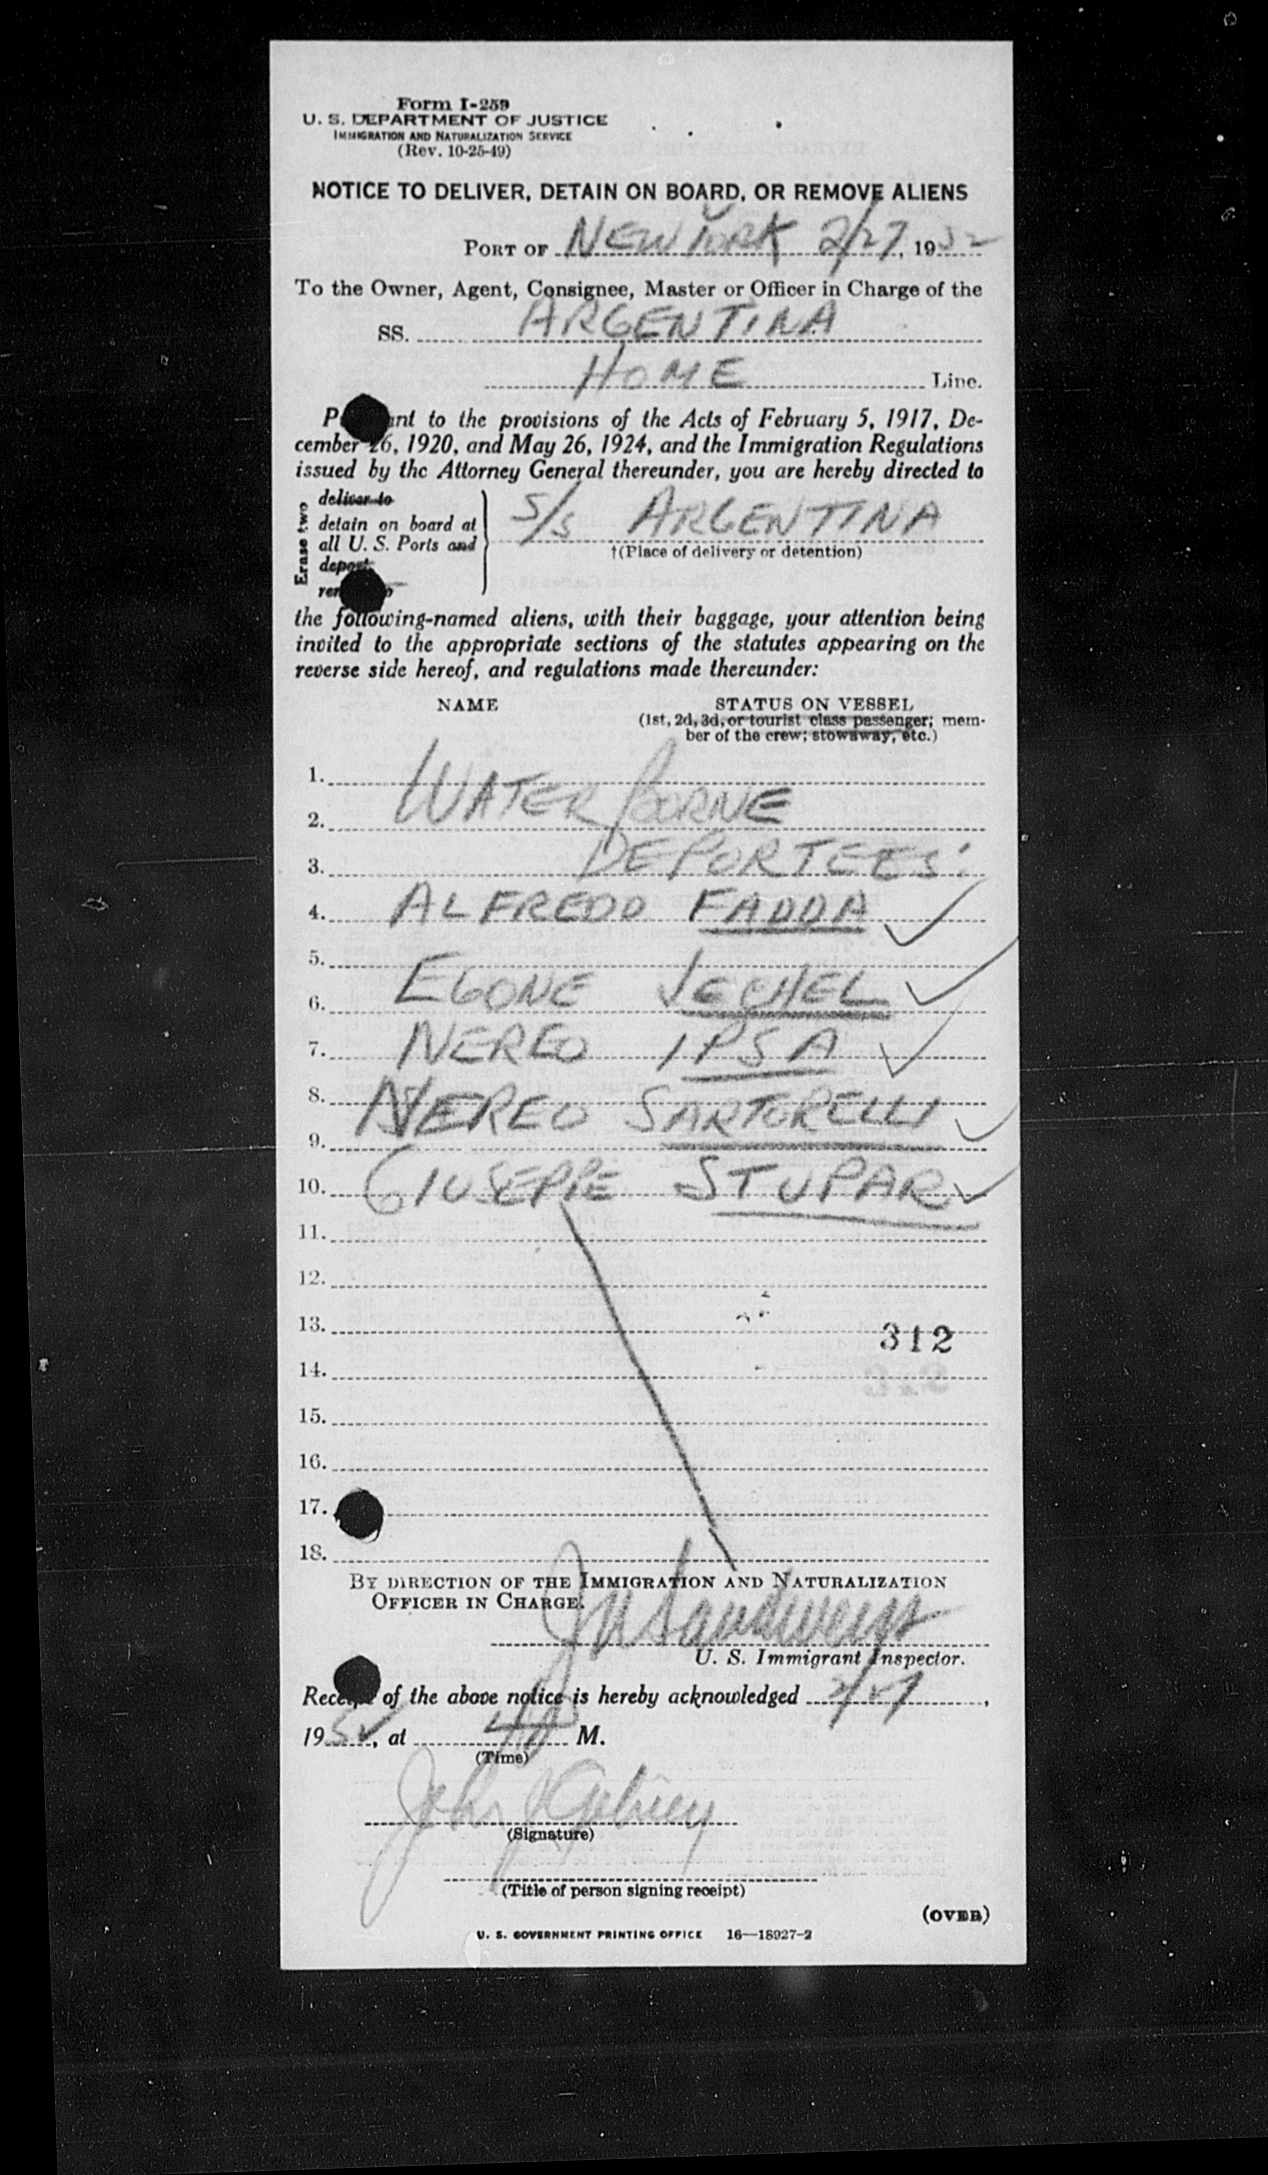 Form I-259
U. S. DEPARTMENT OF JUSTICE
IMMIGRATION AND NATURALIZATION SERVICE
(Rev. 10-25-49)
NOTICE TO DELIVER, DETAIN ON BOARD, OR REMOVE ALIENS
PORT OF NEW YORK 2/27, 1952
To the Owner, Agent, Consignee, Master or Officer in Charge of the
SS. ARGENTINA
HOME Line.
P ant to the provisions of the Acts of February 5, 1917, De-
cember 26, 1920, and May 26, 1924, and the Immigration Regulations
issued by the Attorney General thereunder, you are hereby directed to
Erase two
deliver to
detain on board at
all U. S. Ports and
deport
S/S ARGENTINA
†(Place of delivery or detention)
the following-named aliens, with their baggage, your attention being
invited to the appropriate sections of the statutes appearing on the
reverse side hereof, and regulations made thereunder:
NAME STATUS ON VESSEL
(1st, 2d, 3d, or tourist class passenger; mem-
ber of the crew; stowaway, etc.)
1.
WATER BORNE
2.
3. DEPORTEES:
4. ALFREDO FADDA
5.
6. EGONE JECHEL
7. NEREO IPSA
8.
NEREO SARTORELLI
9.
10. GIUSEPPE STUPAR
11.
12.
13.
312
14.
15.
16.
17.
18.
BY DIRECTION OF THE IMMIGRATION AND NATURALIZATION
OFFICER IN CHARGE.
U. S. Immigrant Inspector.
Receipt of the above notice is hereby acknowledged 2/27,
1952, at M.
(Time)
John
(Signature)
(Title of person signing receipt)
(OVER)
U. S. GOVERNMENT PRINTING OFFICE 16—18927-2